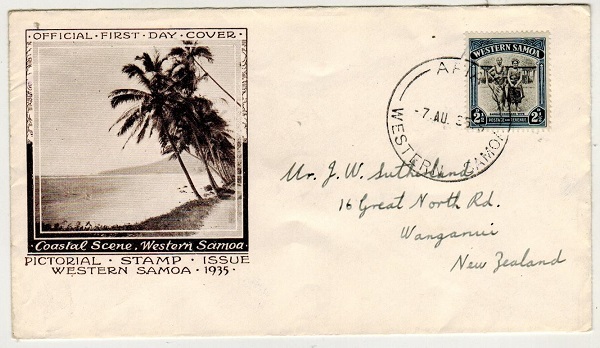 · OFFICIAL · FIRST · DAY · COVER ·
· Coastal Scene, Western Samoa ·
PICTORIAL · STAMP · ISSUE
WESTERN SAMOA · 1935 ·
WESTERN SAMOA
2½ POSTAGE AND REVENUE 2½
AP
-7.AU.35
WESTERN SAMOA
Mr. J. W. Sutherland,
16 Great North Rd.
Wanganui
New Zealand